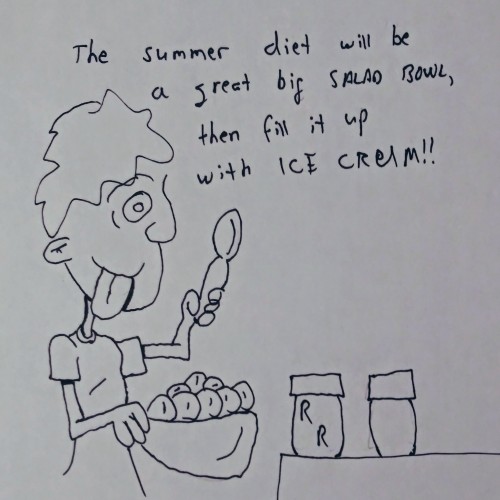 The summer diet will be
a great big SALAD BOWL,
then fill it up
with ICE CREAM!!
R
R